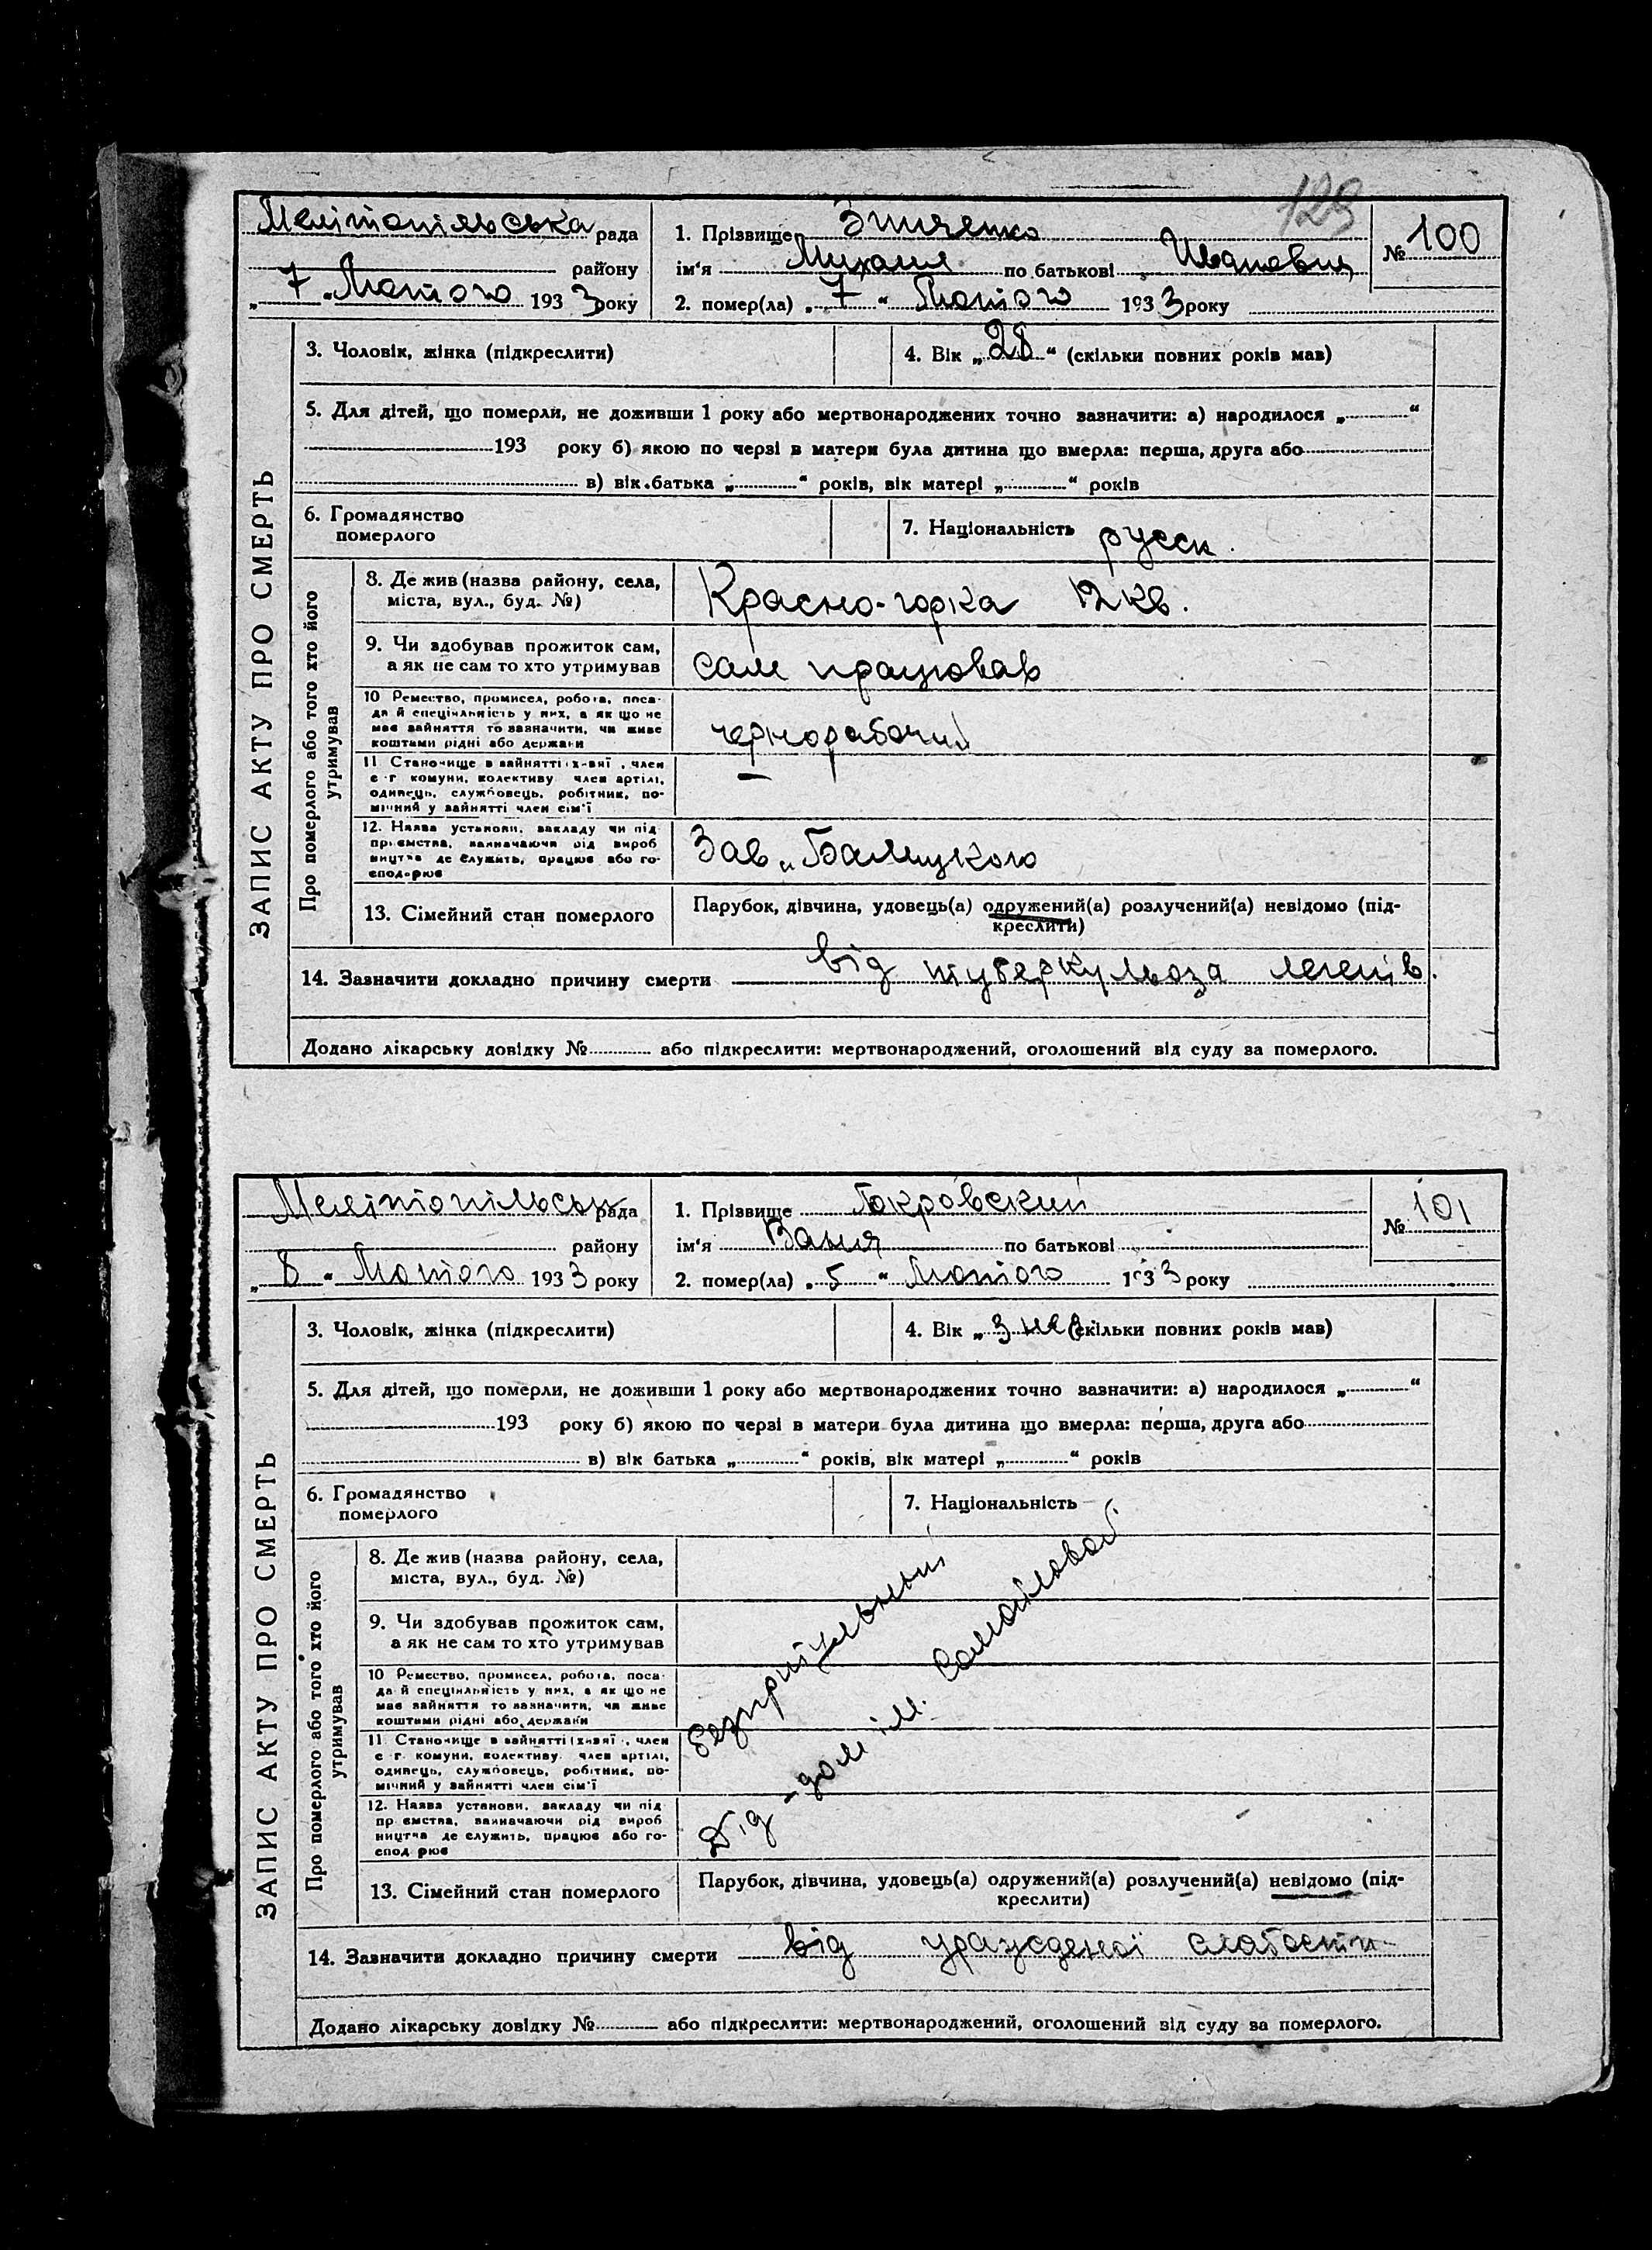 129
Мелітопільська рада
району
„ 7 „ Лютого 1933 року
1. Прізвище
ім'я Михаил по батькові Иванович
2. помер(ла) „ 7 “ Лютого 1933 року
№ 100
ЗАПИС АКТУ ПРО СМЕРТЬ
3. Чоловік, жінка (підкреслити)
4. Вік „ 28 “ (скільки повних років мав)
5. Для дітей, що померли, не доживши 1 року або мертвонароджених точно зазначити: а) народилося „ “
193 року б) якою по черзі в матери була дитина що вмерла: перша, друга або
в) вік батька „ “ років, вік матері „ “ років
6. Громадянство
померлого
7. Національність русск.
Про померлого або того хто його
утримував
8. Де жив (назва району, села,
міста, вул., буд. №)
Красно-горка 12 кв.
9. Чи здобував прожиток сам,
а як не сам то хто утримував
сам працював
10 Ремество, промисел, робота, поса-
да й спеціяльність у них, а як що не
має зайняття то зазначити, чи живе
коштами рідні або держави
чернорабочий
11 Становище в зайнятті член
с-г комуни, колективу член артілі,
одинець, службовець, робітник, по-
мічний у зайнятті член сім'ї
12. Назва установи, закладу чи під
приємства, зазначаючи рід вироб
ництва де служить, працює або го-
сподарює
Зав „Балицкого
13. Сімейний стан померлого
Парубок, дівчина, удовець(а) одружений(а) розлучений(а) невідомо (під-
креслити)
14. Зазначити докладно причину смерти від туберкульоза легенів.
Додано лікарську довідку № або підкреслити: мертвонароджений, оголошений від суду за померлого.
Мелітопільськ рада
району
„ 8 „ Лютого 1933 року
1. Прізвище Покровский
ім'я Ваня по батькові
2. помер(ла) „ 5 “ Лютого 1933 року
№ 101
ЗАПИС АКТУ ПРО СМЕРТЬ
3. Чоловік, жінка (підкреслити)
4. Вік „ 3 нед (скільки повних років мав)
5. Для дітей, що померли, не доживши 1 року або мертвонароджених точно зазначити: а) народилося „ “
193 року б) якою по черзі в матери була дитина що вмерла: перша, друга або
в) вік батька „ “ років, вік матері „ “ років
6. Громадянство
померлого
7. Національність
Про померлого або того хто його
утримував
8. Де жив (назва району, села,
міста, вул., буд. №)
9. Чи здобував прожиток сам,
а як не сам то хто утримував
10 Ремество, промисел, робота, поса-
да й спеціяльність у них, а як що не
має зайняття то зазначити, чи живе
коштами рідні або держави
11 Становище в зайнятті член
с-г комуни, колективу член артілі,
одинець, службовець, робітник, по-
мічний у зайнятті член сім'ї
12. Назва установи, закладу чи під
приємства, зазначаючи рід вироб
ництва де служить, працює або го-
сподарює
безпритульний
Дід-дом ім. Самойловой
13. Сімейний стан померлого
Парубок, дівчина, удовець(а) одружений(а) розлучений(а) невідомо (під-
креслити)
14. Зазначити докладно причину смерти від урожденої слабости
Додано лікарську довідку № або підкреслити: мертвонароджений, оголошений від суду за померлого.